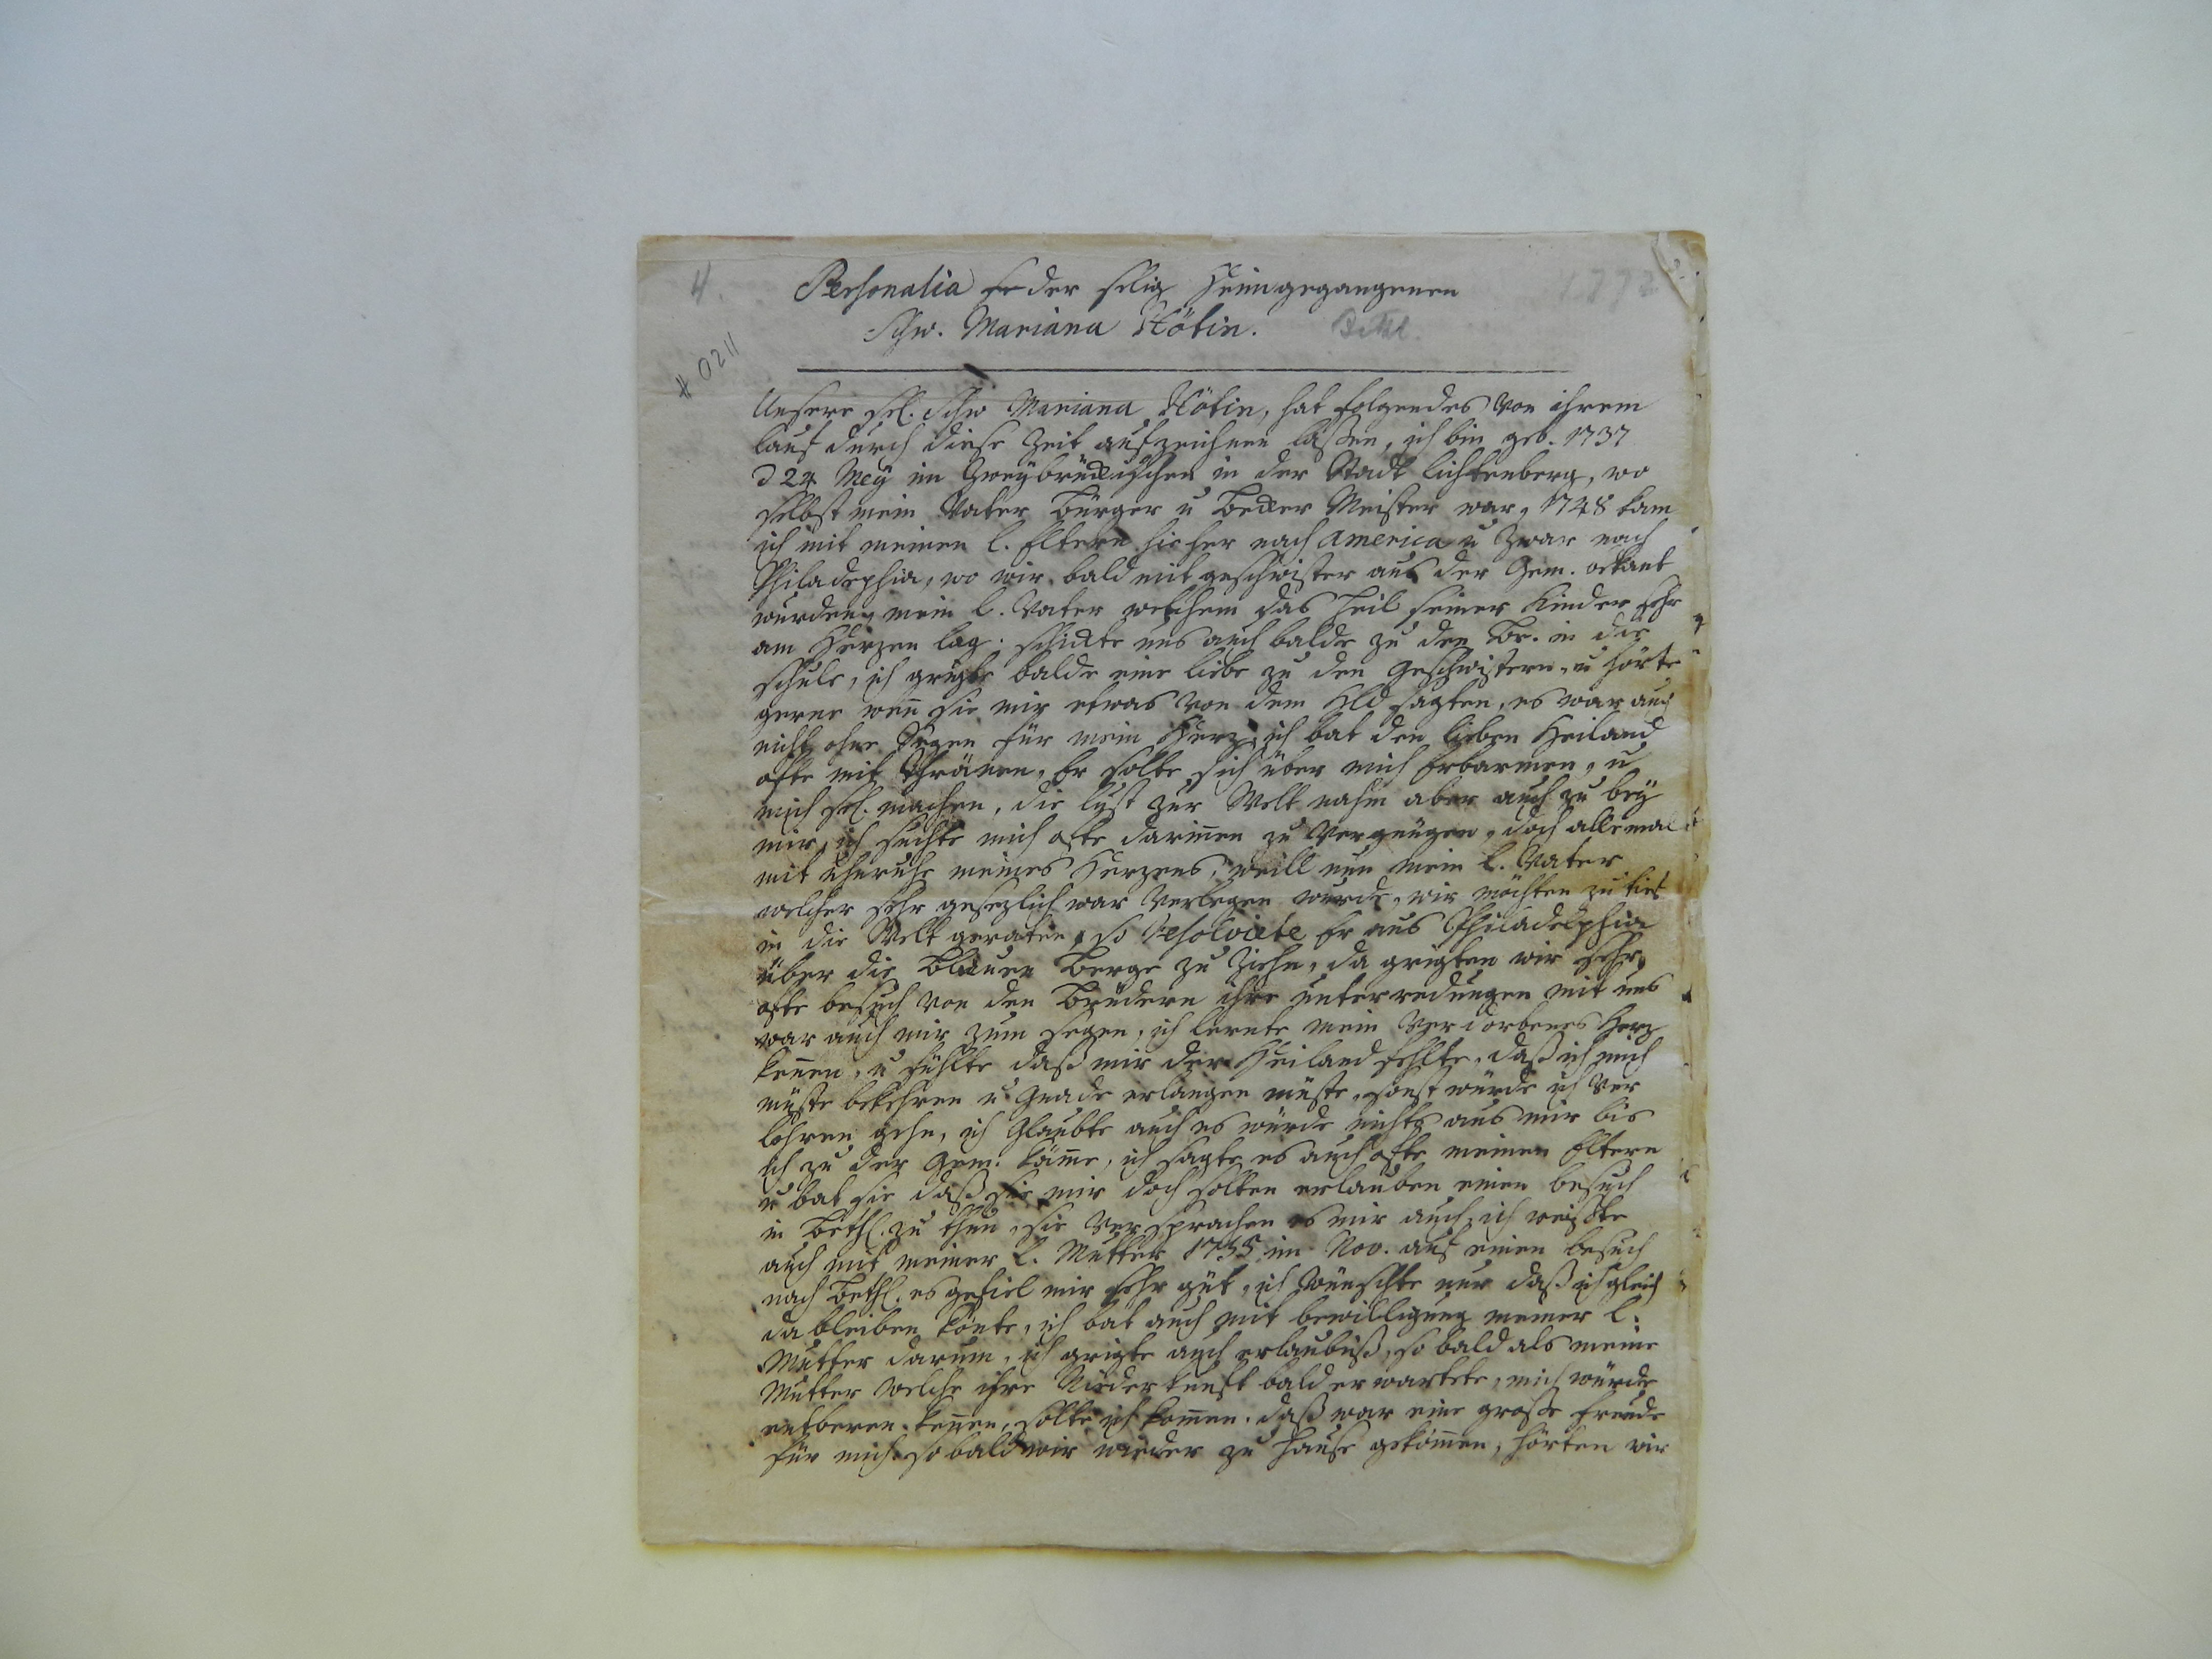 4.
1772
# 0211
Personalia der selig Heimgegangenen
Schw. Mariana Hötin. Bethl.
Unsere sel. Schw Mariana Hötin, hat folgendes von ihrem
lauf durch diese Zeit aufzeichnen laßen, ich bin geb. 1737
d 24 Mey im Zweybrückischen in der Stadt lichtenberg, wo
selbst mein Vater Bürger u Becker Meister war, 1748 kam
ich mit meinen l. Eltern hieher nach America u zwar nach
Philadephia, wo wir bald mit geschwister aus der Gem. bekant
wurden, mein l. Vater welchem das heil seiner Kinder sehr
am Herzen lag: schickte uns auch balde zu den Br. in die
schule, ich grigte balde eine liebe zu den Geschwistern, u hörte
gerne wen̄ sie mir etwas von dem Hld sagten, es war auch
nicht ohne Segen für mein Herz, ich bat den lieben Heiland
ofte mit Thränen, Er solte sich über mich Erbarmen, u
mich sel. machen, die lust zur Welt nahm aber auch zu bey
mir, ich suchte mich ofte darin̄en zu vergnügen, doch allemal
mit Unruhe meines Herzens, weill nun mein l. Vater
welcher sehr gesezlich war verlegen wurde, wir möchten zu tief
in die Welt geraten, so resolvirte Er aus Philadelphia
über die Blauen Berge zu ziehn, da grigten wir sehr
ofte besuch von den Brüdern ihre unterredungen mit uns
war auch mir zum segen, ich lernte mein verdorbenes Herz
ken̄en, u fühlte daß mir der Heiland fehlte, daß ich mich
müste bekehren u Gnade erlangen müste, sonst würde ich ver
lohren gehn, ich Glaubte auch es würde nichts aus mir bis
ich zu der Gem. käm̄e, ich sagte es auch ofte meinen Eltern
u bat sie, daß sie mir doch solten erlauben einen besuch
in Bethl. zu thun, sie versprachen es mir auch, ich
auch mit meiner l. Mutter 1755 im Nov. auf einen besuch
nach Bethl. es gefiel mir sehr gut, ich wünschte nur daß ich gleich
da bleiben könte, ich bat auch mit bewilligung meiner l.
Mutter darum, ich grigte auch erlaubniß, so bald als meine
Mutter welche ihre Niederkunft bald erwartete, mich würde
entberen ken̄en, solte ich kom̄en. daß war eine große freude
für mich so bald wir wieder zu Hause gekom̄en, hörten wir